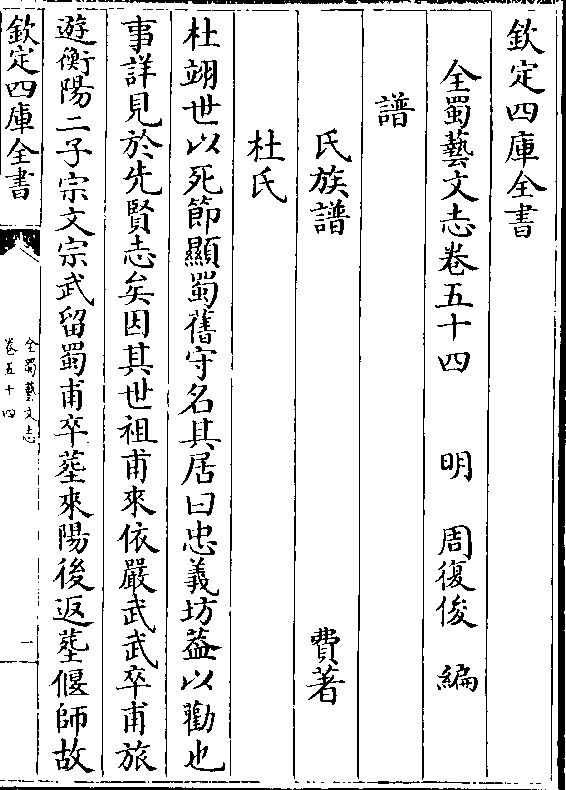 欽定四庫全書
全蜀藝文志卷五十四 明 周復俊 編
譜
氏族譜 費著
杜氏
杜翊世以死節顯蜀舊守名其居曰忠義坊葢以勸也
事詳見於先賢志矣因其世祖甫來依嚴武武卒甫旅
遊衡陽二子宗文宗武留蜀甫卒塟來陽後返塟偃師故
欽定四庫全書
全蜀藝文志
卷五十四
一